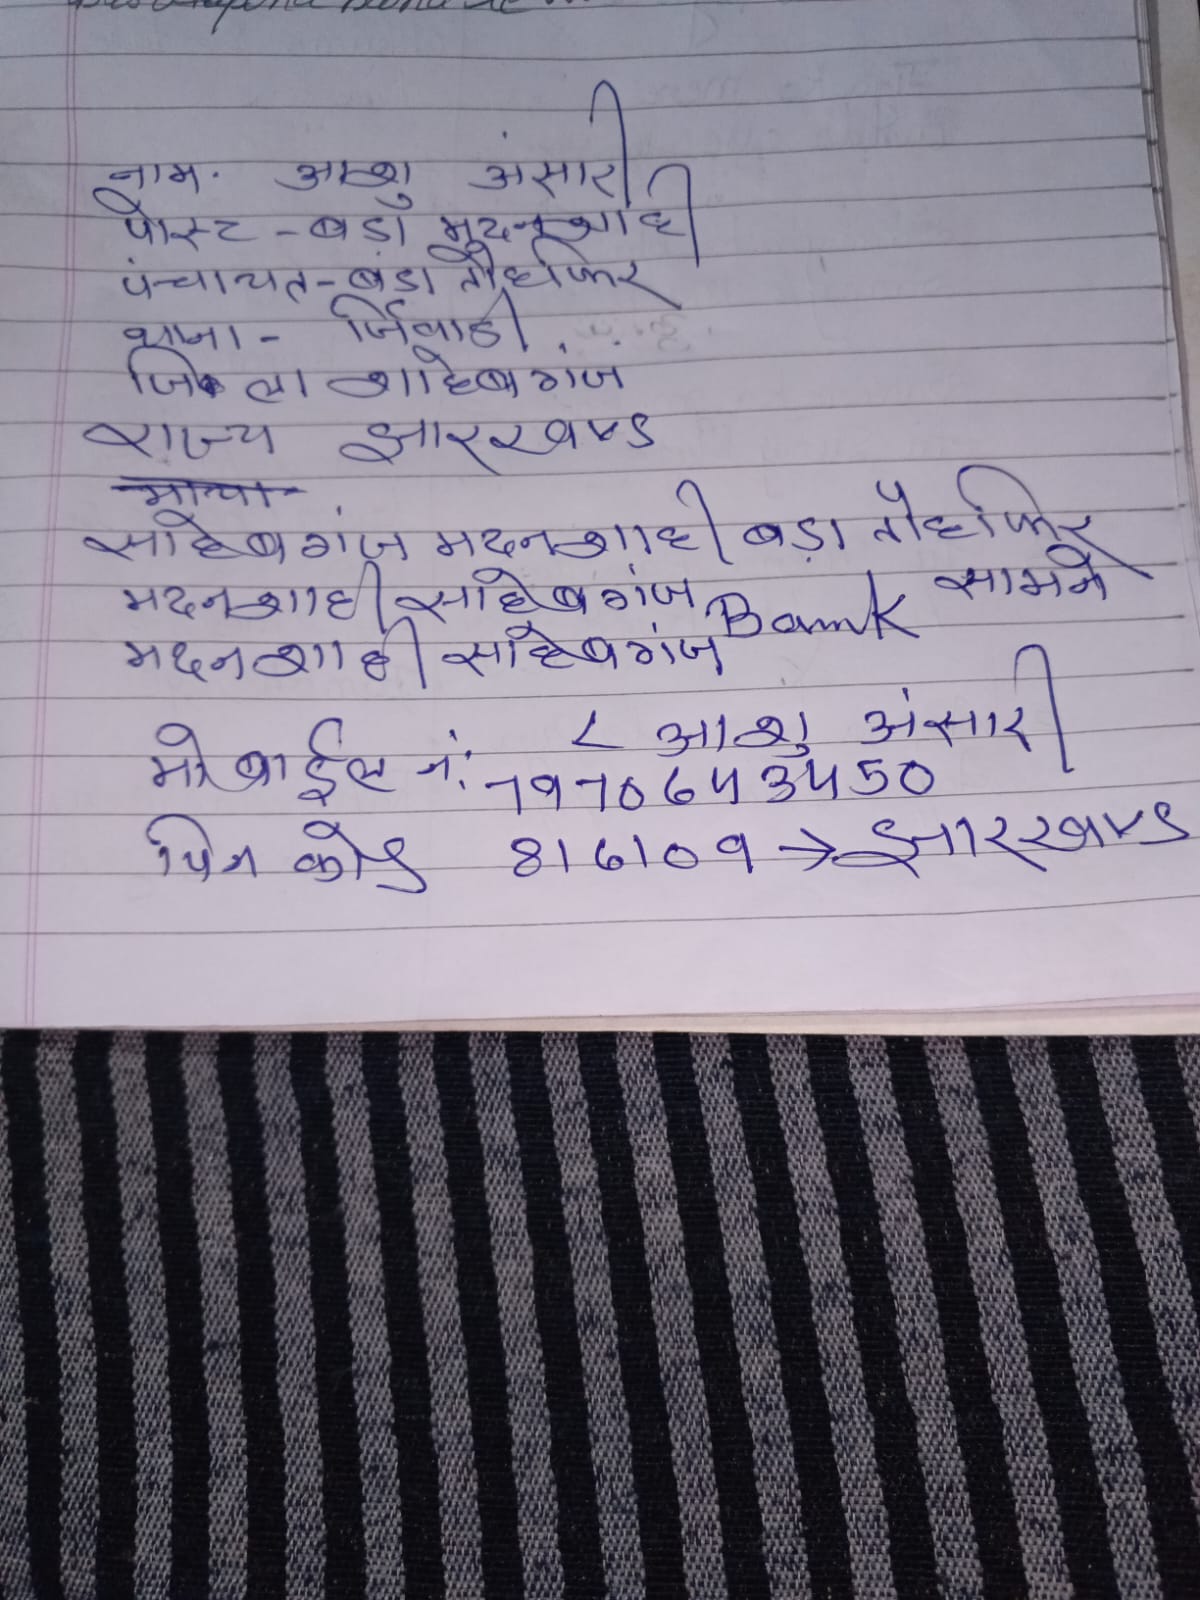 नाम. आशु अंसारी
पोस्ट - बड़ा मदनशाही
पंचायत - बड़ा तौफिर
थाना - जिवाडी
जिला शाहेबगंज
राज्य झारखण्ड
साहेबगंज मदनशाही बड़ा तौफिर
मदनशाही साहेबगंज Bank सामने
मदनशाही साहेबगंज
< आशु अंसारी
मोबाईल नं. 7970643450
पिन कोड 816109 → झारखण्ड